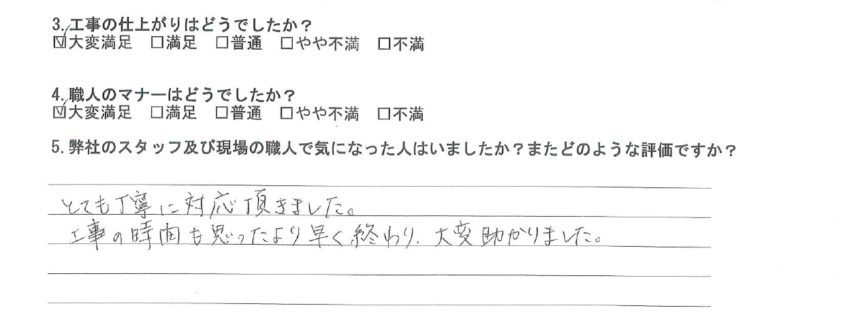 3.工事の仕上がりはどうでしたか？
☑大変満足 □満足 □普通 □やや不満 □不満
4.職人のマナーはどうでしたか？
☑大変満足 □満足 □普通 □やや不満 □不満
5.弊社のスタッフ及び現場の職人で気になった人はいましたか？またどのような評価ですか？
とても丁寧に対応頂きました。
工事の時間も思ったより早く終わり、大変助かりました。